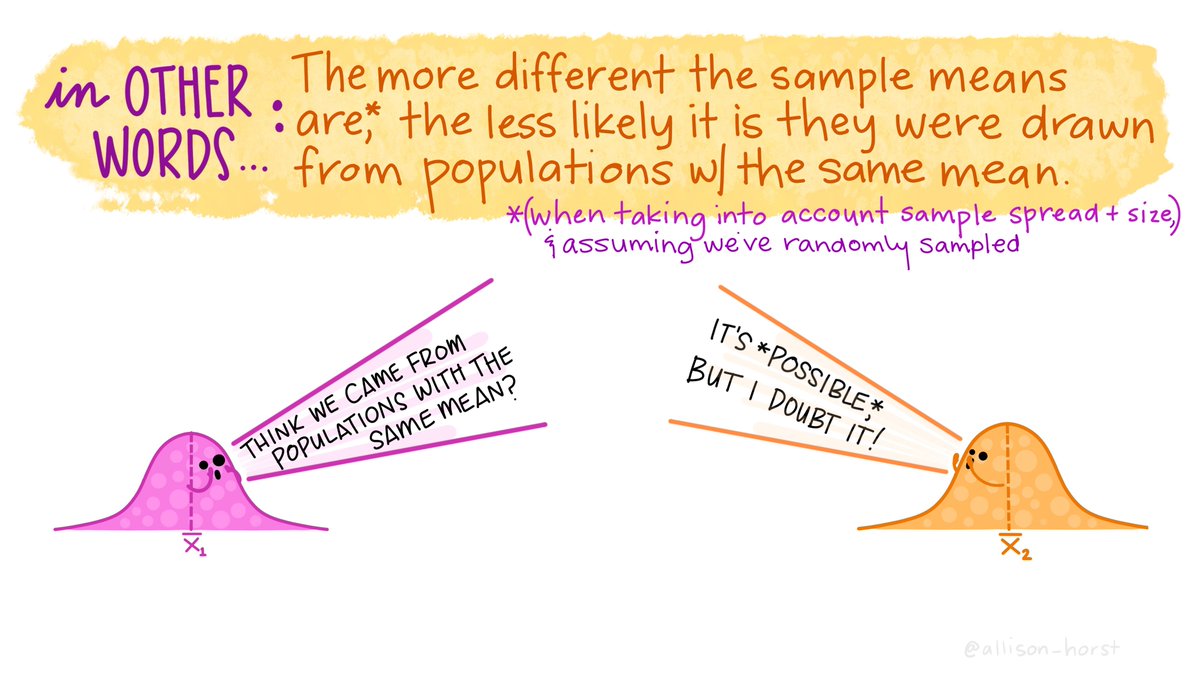 in OTHER WORDS... :
The more different the sample means
are,* the less likely it is they were drawn
from populations w/ the same mean.
*(when taking into account sample spread + size,)
& assuming we've randomly sampled
THINK WE CAME FROM
POPULATIONS WITH THE
SAME MEAN?
IT'S *POSSIBLE,*
BUT I DOUBT IT!
x̄₁
x̄₂
@allison_horst